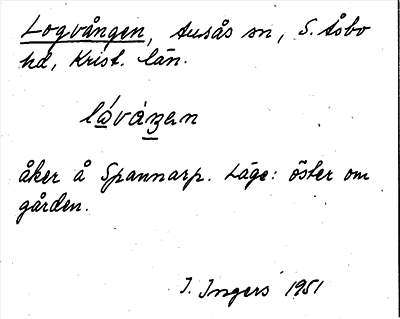 Logvången, Ausås sn, S. Åsbo
hd, Krist. län.
lávázan
åker å Spannarp. Läge: öster om
gården.
I. Ingers 1951